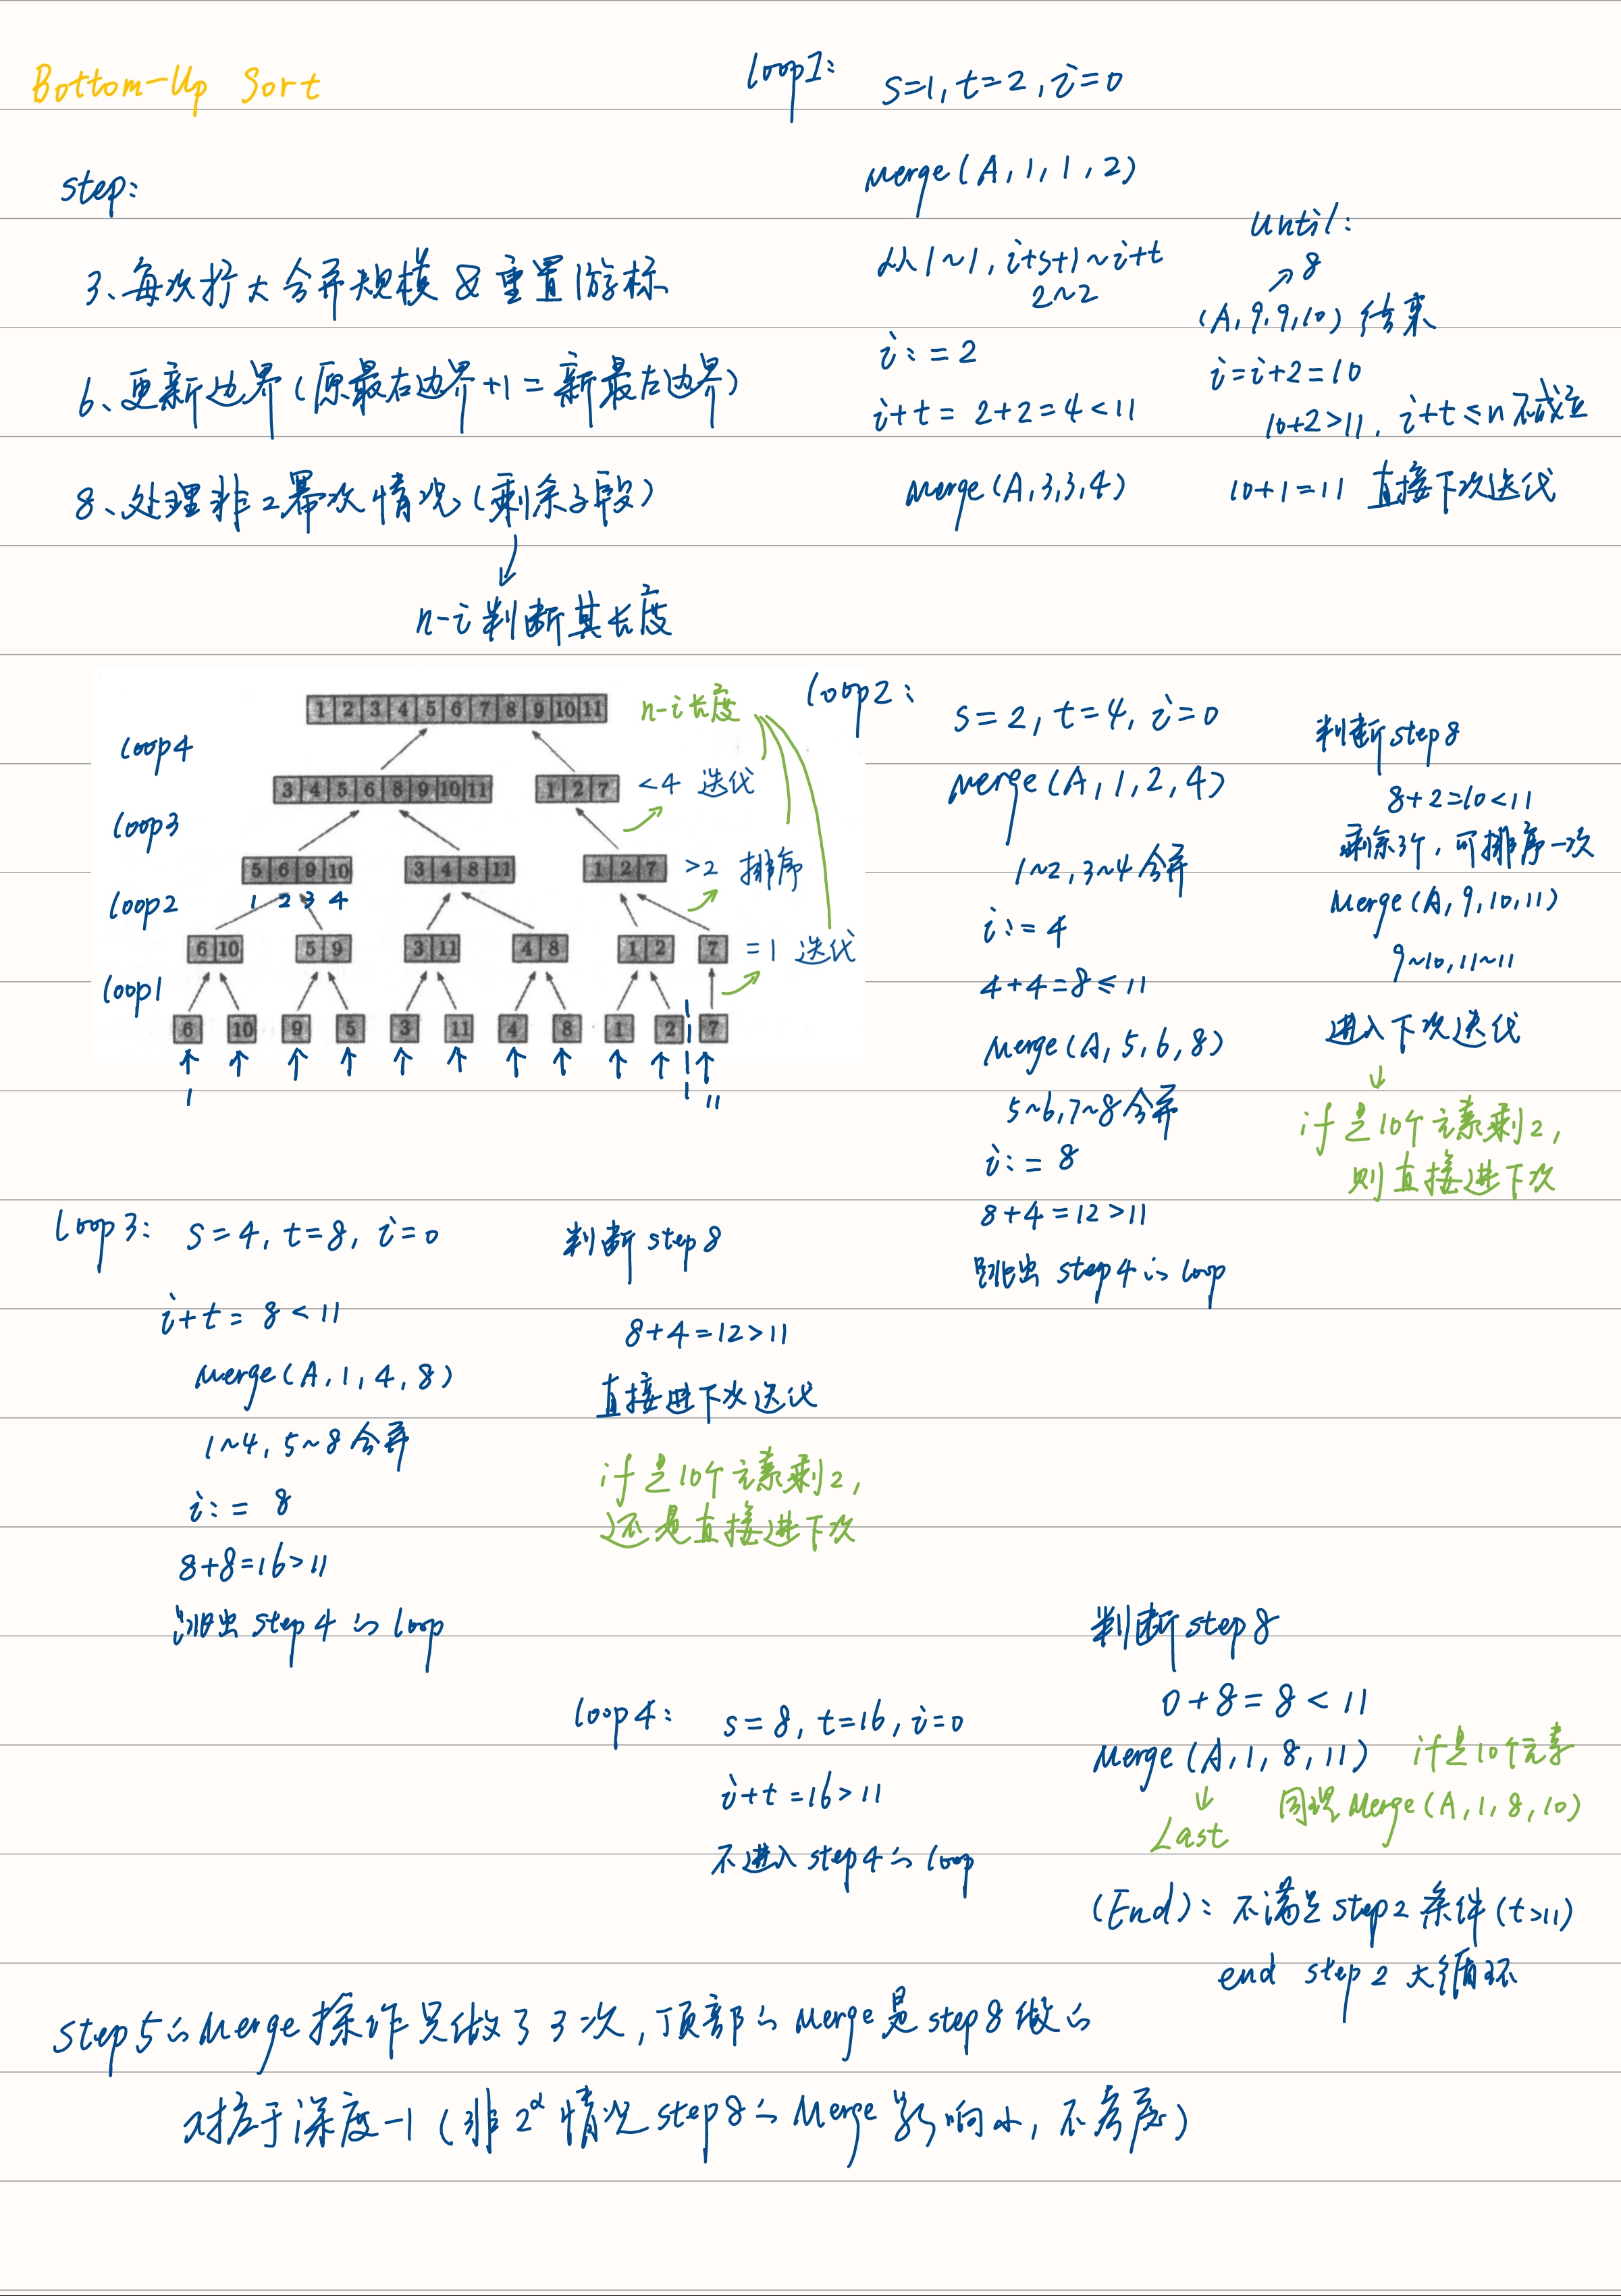 Bottom-Up Sort
step:
3、每次扩大合并规模 & 重置游标
6、更新边界(原最右边界+1 = 新最左边界)
8、处理非2幂次情况(剩余子段)
n-i 判断其长度
loop1:
s=1, t=2, i=0
Merge(A, 1, 1, 2)
从 1~1, i+s+1~i+t
2~2
i:=2
i+t = 2+2=4<11
Merge(A,3,3,4)
until:
8
(A,9,9,10) 结束
i=i+2=10
10+2>11, i+t≤n 不成立
10+1=11 直接下次迭代
1 2 3 4 5 6 7 8 9 10 11
n-i长度
loop4
3 4 5 6 8 9 10 11
1 2 7
<4 迭代
loop3
5 6 9 10
3 4 8 11
1 2 7
>2 排序
1 2 3 4
loop2
6 10
5 9
3 11
4 8
1 2
7
=1 迭代
loop1
6 10 9 5 3 11 4 8 1 2 7
1
11
loop2:
s=2, t=4, i=0
Merge(A, 1, 2, 4)
1~2, 3~4 合并
i:=4
4+4=8≤11
Merge(A, 5, 6, 8)
5~6, 7~8 合并
i:=8
8+4=12>11
跳出 step4 的 loop
判断 step8
8+2=10<11
剩余3个, 可排序一次
Merge(A, 9, 10, 11)
9~10, 11~11
进入下次迭代
if 是10个元素剩2,
则直接进下次
loop3:
s=4, t=8, i=0
i+t = 8<11
Merge(A, 1, 4, 8)
1~4, 5~8 合并
i:= 8
8+8=16>11
跳出 step4 的 loop
判断 step8
8+4=12>11
直接进下次迭代
if 是10个元素剩2,
还是直接进下次
loop4:
s=8, t=16, i=0
i+t=16>11
不进入 step4 的 loop
判断 step8
0+8=8<11
Merge(A, 1, 8, 11)
Last
if 是10个元素
同理 Merge(A, 1, 8, 10)
(End): 不满足 step2 条件 (t>11)
end step2 大循环
step5的Merge操作只做了3次, 顶部的Merge是step8做的
对应于深度-1 (非2^α情况 step8的Merge影响小, 不考虑)